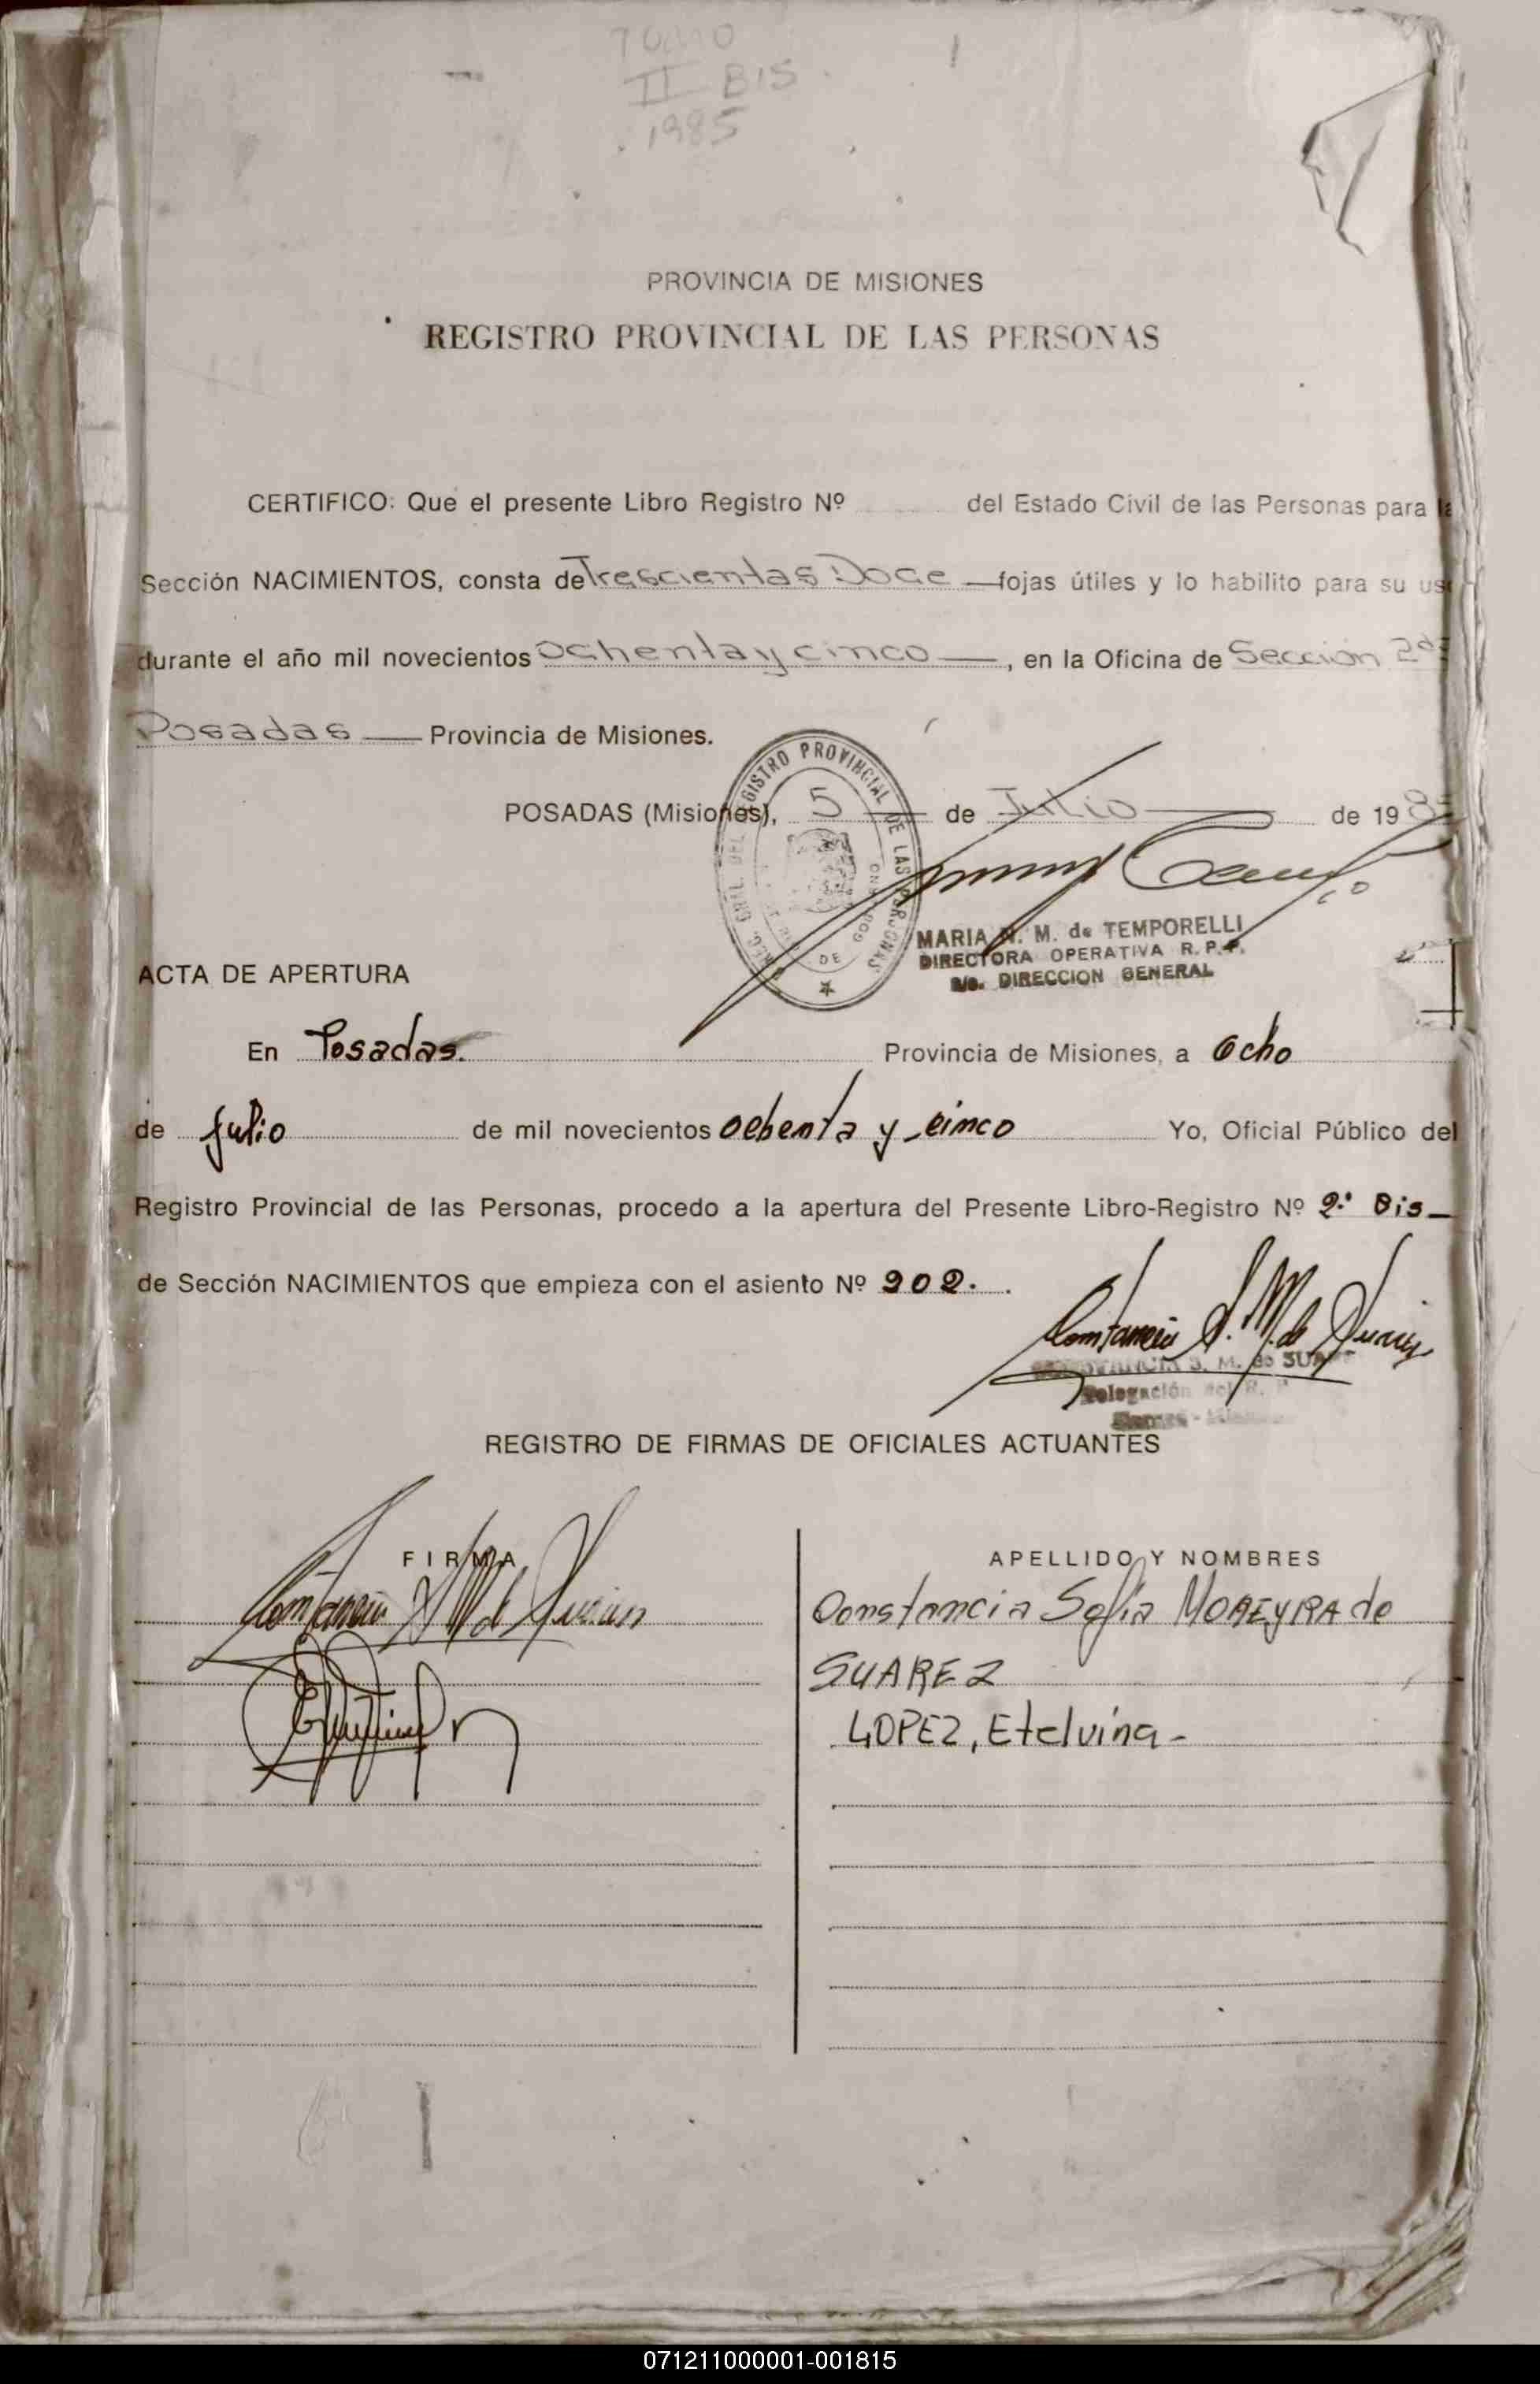 TOMO
II BIS
1985
PROVINCIA DE MISIONES
REGISTRO PROVINCIAL DE LAS PERSONAS
CERTIFICO: Que el presente Libro Registro Nº del Estado Civil de las Personas para la
Sección NACIMIENTOS, consta de Trescientas Doce — fojas útiles y lo habilito para su uso
durante el año mil novecientos Ochenta y cinco —, en la Oficina de Sección 2da
Posadas — Provincia de Misiones.
POSADAS (Misiones), 5 — de Julio — de 198
REGISTRO PROVINCIAL DE LAS PERSONAS
MARIA N. M. de TEMPORELLI
DIRECTORA OPERATIVA R. P. P.
a/c. DIRECCION GENERAL
ACTA DE APERTURA
En Posadas. Provincia de Misiones, a ocho
de julio de mil novecientos ochenta y cinco Yo, Oficial Público del
Registro Provincial de las Personas, procedo a la apertura del Presente Libro-Registro Nº 2º Bis —
de Sección NACIMIENTOS que empieza con el asiento Nº 902.
Constancia S. M. de Suarez
CONSTANCIA S. M. de SUAREZ
Delegación del R. P
REGISTRO DE FIRMAS DE OFICIALES ACTUANTES
FIRMA APELLIDO Y NOMBRES
Constancia S M de Suarez Constancia Sofia MOREYRA de
SUAREZ
LOPEZ, Etelvina -
071211000001-001815